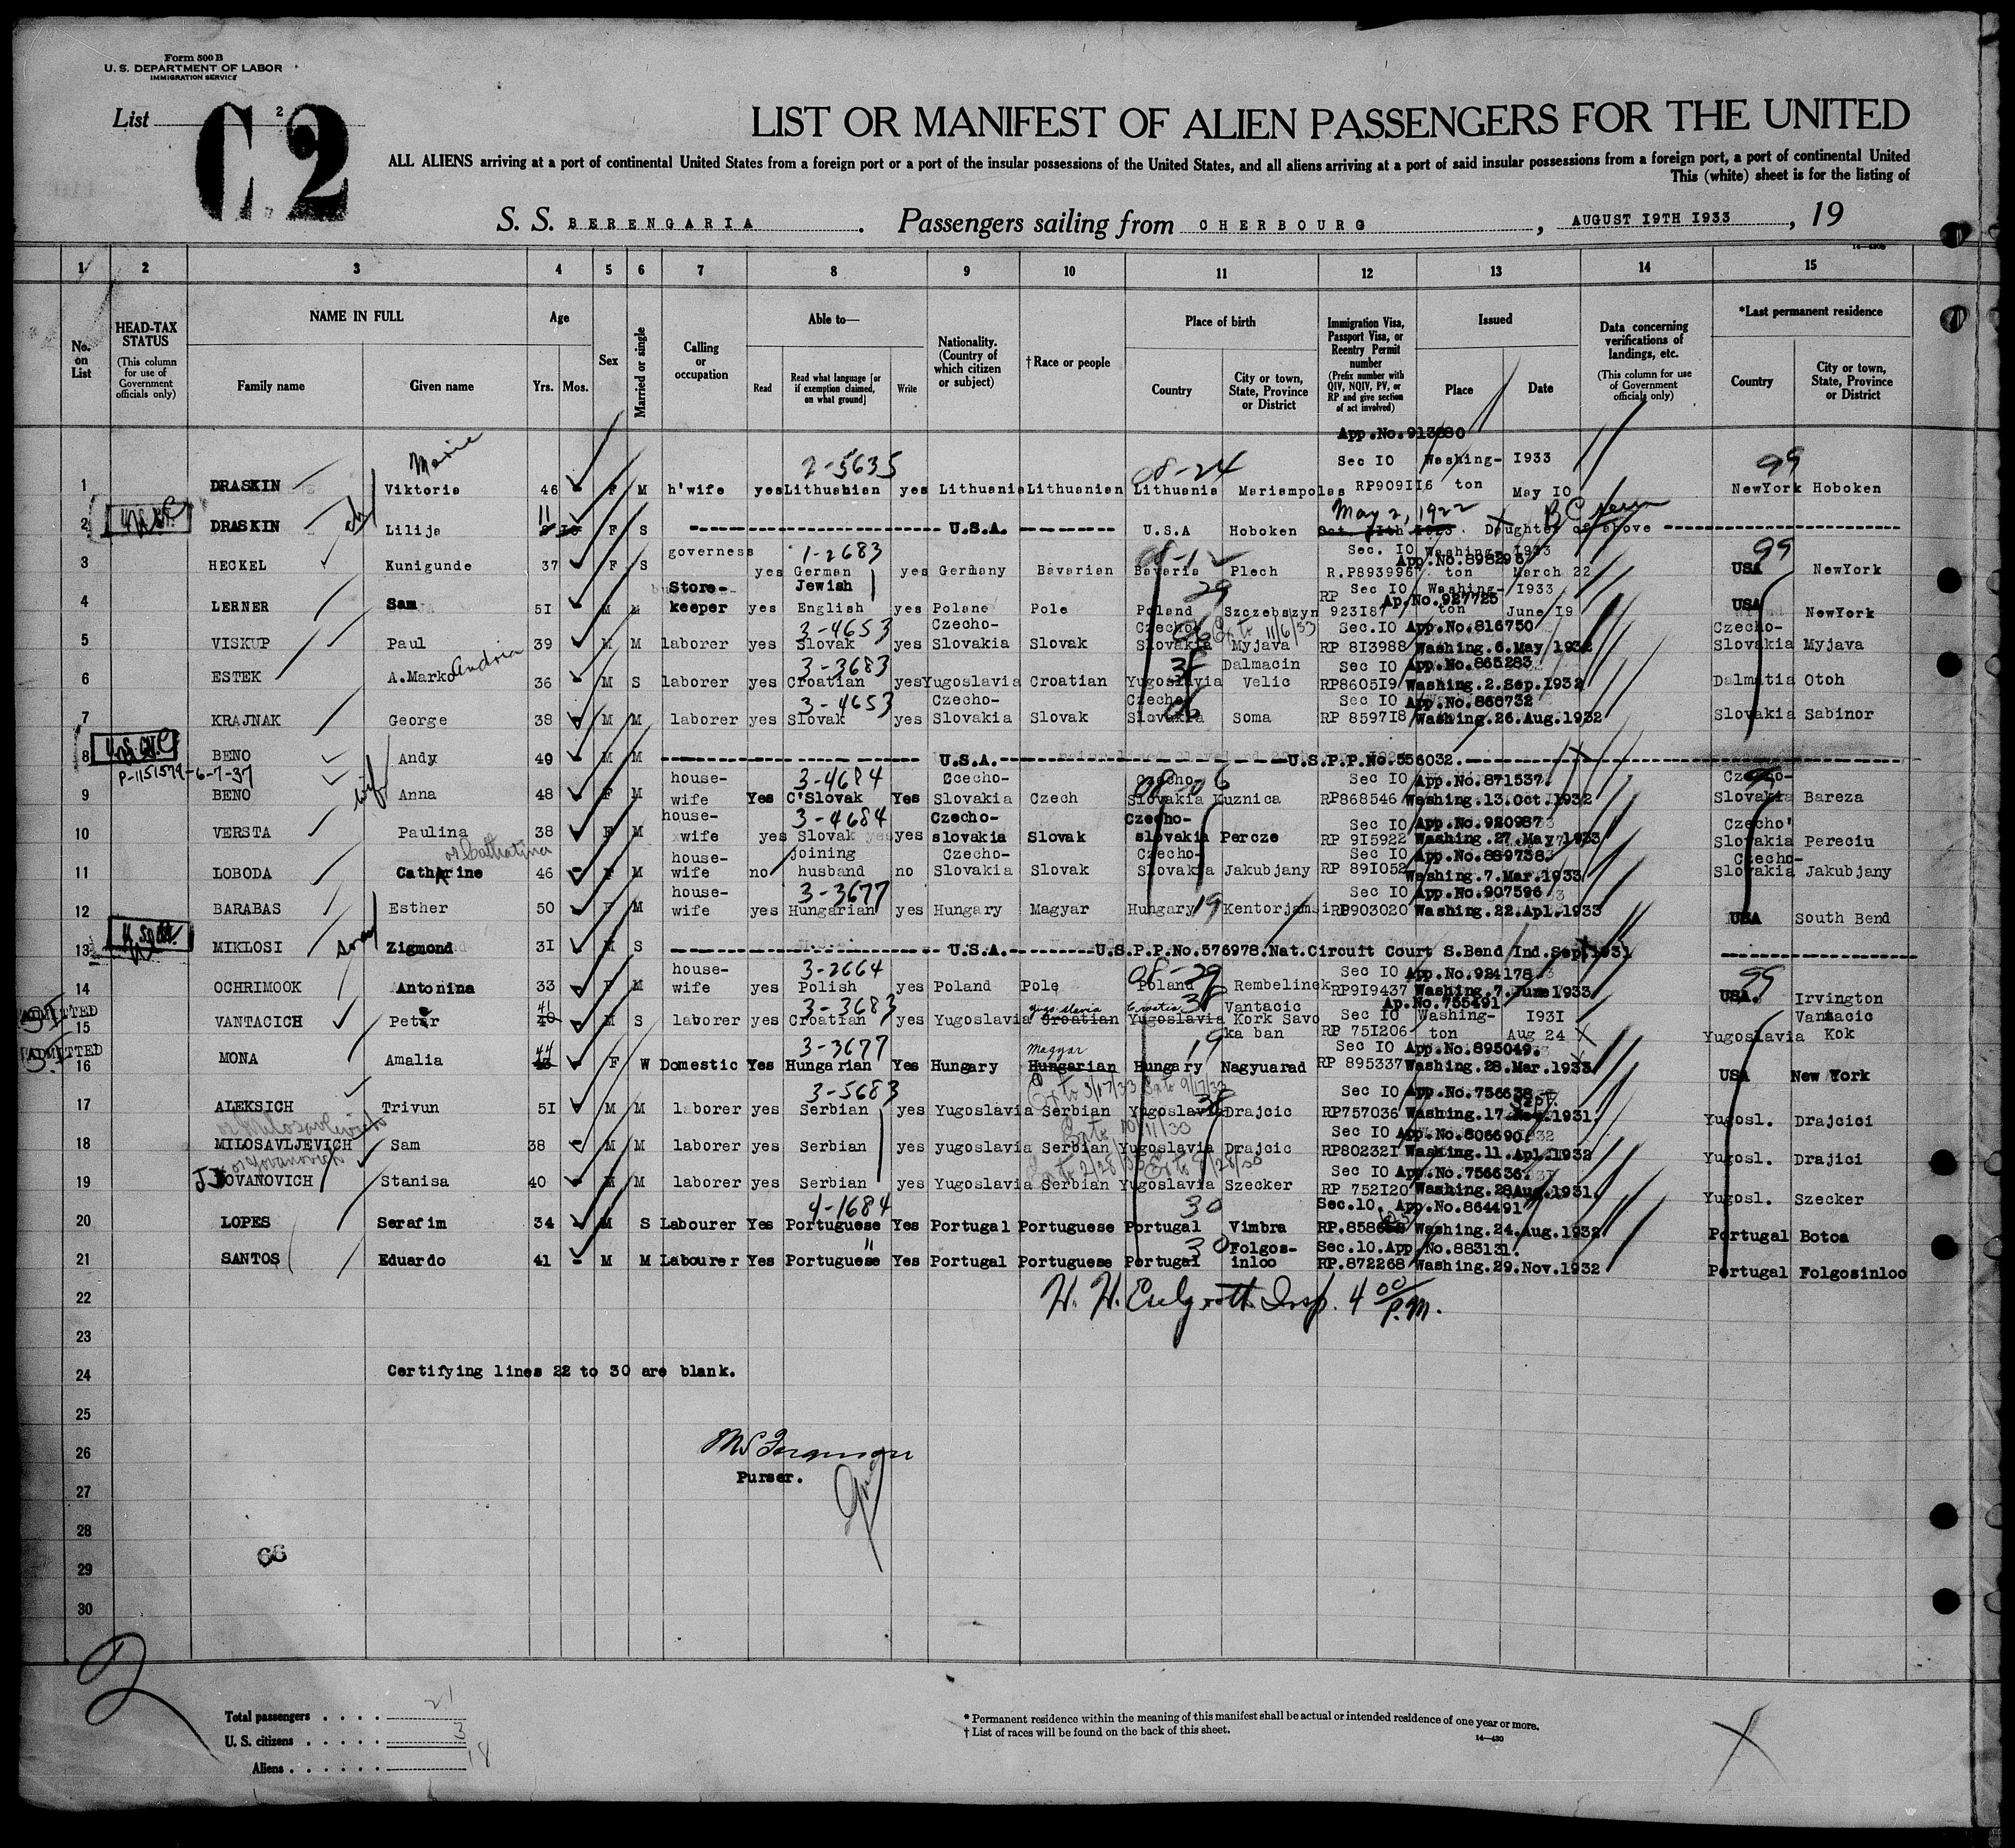 Form 500 B
U. S. DEPARTMENT OF LABOR
IMMIGRATION SERVICE
List 2
C2
LIST OR MANIFEST OF ALIEN PASSENGERS FOR THE UNITED
ALL ALIENS arriving at a port of continental United States from a foreign port or a port of the insular possessions of the United States, and all aliens arriving at a port of said insular possessions from a foreign port, a port of continental United
This (white) sheet is for the listing of
S. S. BERENGARIA. Passengers sailing from CHERBOURG, AUGUST I9TH I933, 19
14—430B
1 2 3 4 5 6 7 8 9 10 11 12 13 14 15
No. on List
HEAD-TAX STATUS
(This column for use of Government officials only)
NAME IN FULL
Family name Given name
Age
Yrs. Mos.
Sex
Married or single
Calling or occupation
Able to—
Read Read what language [or if exemption claimed, on what ground] Write
Nationality. (Country of which citizen or subject)
†Race or people
Place of birth
Country City or town, State, Province or District
Immigration Visa, Passport Visa, or Reentry Permit number
(Prefix number with QIV, NQIV, PV, or RP and give section of act involved)
Issued
Place Date
Data concerning verifications of landings, etc.
(This column for use of Government officials only)
*Last permanent residence
Country City or town, State, Province or District
App.No.913880
Marie 2-5635 08-24 Sec IO Washing- I933 99
1 DRASKIN Viktoria 46 F M h'wife yes Lithuanian yes Lithuania Lithuanian Lithuania Mariampolas RP909II6 ton May IO NewYork Hoboken
11 May 2, 1922
2 DRASKIN Lilija F S U.S.A. U.S.A Hoboken Daughter of above
governess 1-2683 08-1 Sec. IO Washing- I933 App.No.898296 99
3 HECKEL Kunigunde 37 F S yes German yes Germany Bavarian Bavaria Plech R.P893996 ton March 22 USA NewYork
Store- Jewish 29 RP Sec IO Washing- I933 Ap.No.927725
4 LERNER Sam 5I M M keeper yes English yes Polane Pole Poland Szczebszyn 923I87 ton June I9 USA NewYork
3-4653 Czecho- Czecho- 06 11/6/33 Sec.IO App.No.816750 Czecho-
5 VISKUP Paul 39 M M laborer yes Slovak yes Slovakia Slovak Slovakia Myjava RP 8I3988 Washing.6.May 1932 Slovakia Myjava
Andria 3-3683 38 Dalmacin Sec IO App.No.865283
6 ESTEK A.Marko 36 M S laborer yes Croatian yes Yugoslavia Croatian Yugoslavia Velic RP8605I9 Washing.2.Sep.1932 Dalmatia Otoh
3-4653 Czecho- Czecho- 06 Sec IO App.No.860732
7 KRAJNAK George 38 M M laborer yes Slovak yes Slovakia Slovak Slovakia Soma RP 8597I8 Washing.26.Aug.1932 Slovakia Sabinor
8 BENO Andy 49 M M U.S.A. U.S.P.P.No.556032.
P-1151579-6-7-37
wife house- 3-4684 Ccecho- Czecho- 08-06 Sec IO App.No.871537. Czecho-
9 BENO Anna 48 F M wife Yes C'Slovak Yes Slovakia Czech Slovakia Kuznica RP868546 Washing.13.Oct.1932 Slovakia Bareza
house- 3-4684 Czecho- Czecho- Sec IO App.No.920987 Czecho'
10 VERSTA Paulina 38 F M wife yes Slovak yes slovakia Slovak slovakia Percze RP 9I5922 Washing.27.May 1933 Slovakia Pereciu
or Catharina house- joining Czecho- Czecho- Sec IO App.No.889738 Czecho-
11 LOBODA Catharine 46 F M wife no husband no Slovakia Slovak Slovakia Jakubjany RP 89I052 Washing.7.Mar.1933 Slovakia Jakubjany
house- 3-3677 Sec IO App.No.907596
12 BARABAS Esther 50 F M wife yes Hungarian yes Hungary Magyar Hungary 19 Kentorjamsi RP903020 Washing.22.Apl.1933 USA South Bend
13 MIKLOSI Zigmond 3I M S U.S.A. U.S.P.P.No.576978.Nat.Circuit Court S.Bend Ind.Sep.1931
house- 3-2664 08-29 Sec IO App.No.924178 99
14 OCHRIMOOK Antonina 33 F M wife yes Polish yes Poland Pole Poland Rembelinek RP9I9437 Washing.7.June 1933 USA. Irvington
ADMITTED SI 41 3-3683 Yugoslavia Croatia 38 Vantacic Ap.No.755491 Sec IO Washing- I93I Vantacic
15 VANTACICH Peter 40 M S laborer yes Croatian yes Yugoslavia Croatian Yugoslavia Kork Savo ka ban RP 75I206 ton Aug 24 Yugoslavia Kok
ADMITTED SI 44 3-3677 Magyar 19 Sec IO App.No.895049.
16 MONA Amalia F W Domestic Yes Hungarian Yes Hungary Hungarian Hungary Nagyuarad RP 895337 Washing.28.Mar.1933 USA New York
3-5683 Ext to 3/17/33 Ext to 9/17/33 38 Sec IO App.No.756638 Sept.
17 ALEKSICH Trivun 5I M M laborer yes Serbian yes Yugoslavia Serbian Yugoslavia Drajcic RP757036 Washing.17. 1931. Yugosl. Drajcici
or Milosavlevich Sec IO App.No.806690.
18 MILOSAVLJEVICH Sam 38 M M laborer yes Serbian yes yugoslavia Serbian Yugoslavia Drajcic RP80232I Washing.11.Apl.1932 Yugosl. Drajici
or Jovanovich Sec IO App.No.756636
19 JOVANOVICH Stanisa 40 M M laborer yes Serbian yes Yugoslavia Serbian Yugoslavia Szecker RP 752I20 Washing.28.Aug.1931. Yugosl. Szecker
4-1684 30 Sec.10. App.No.864491
20 LOPES Serafim 34 M S Labourer Yes Portuguese Yes Portugal Portuguese Portugal Vimbra Washing.24.Aug.1932 Portugal Botoa
" 30 Folgos- Sec.10.App.No.883131.
21 SANTOS Eduardo 41 M M Labourer Yes Portuguese Yes Portugal Portuguese Portugal inloo RP.872268 Washing.29.Nov.1932 Portugal Folgosinloo
22 Insp. 4 00 P.M.
23
24 Certifying lines 22 to 30 are blank.
25
26
Purser.
27
28
29 66
30
2
Total passengers . . . . 21
U. S. citizens . . . . . 3
Aliens . . . . . . 18
* Permanent residence within the meaning of this manifest shall be actual or intended residence of one year or more.
† List of races will be found on the back of this sheet.
14—430